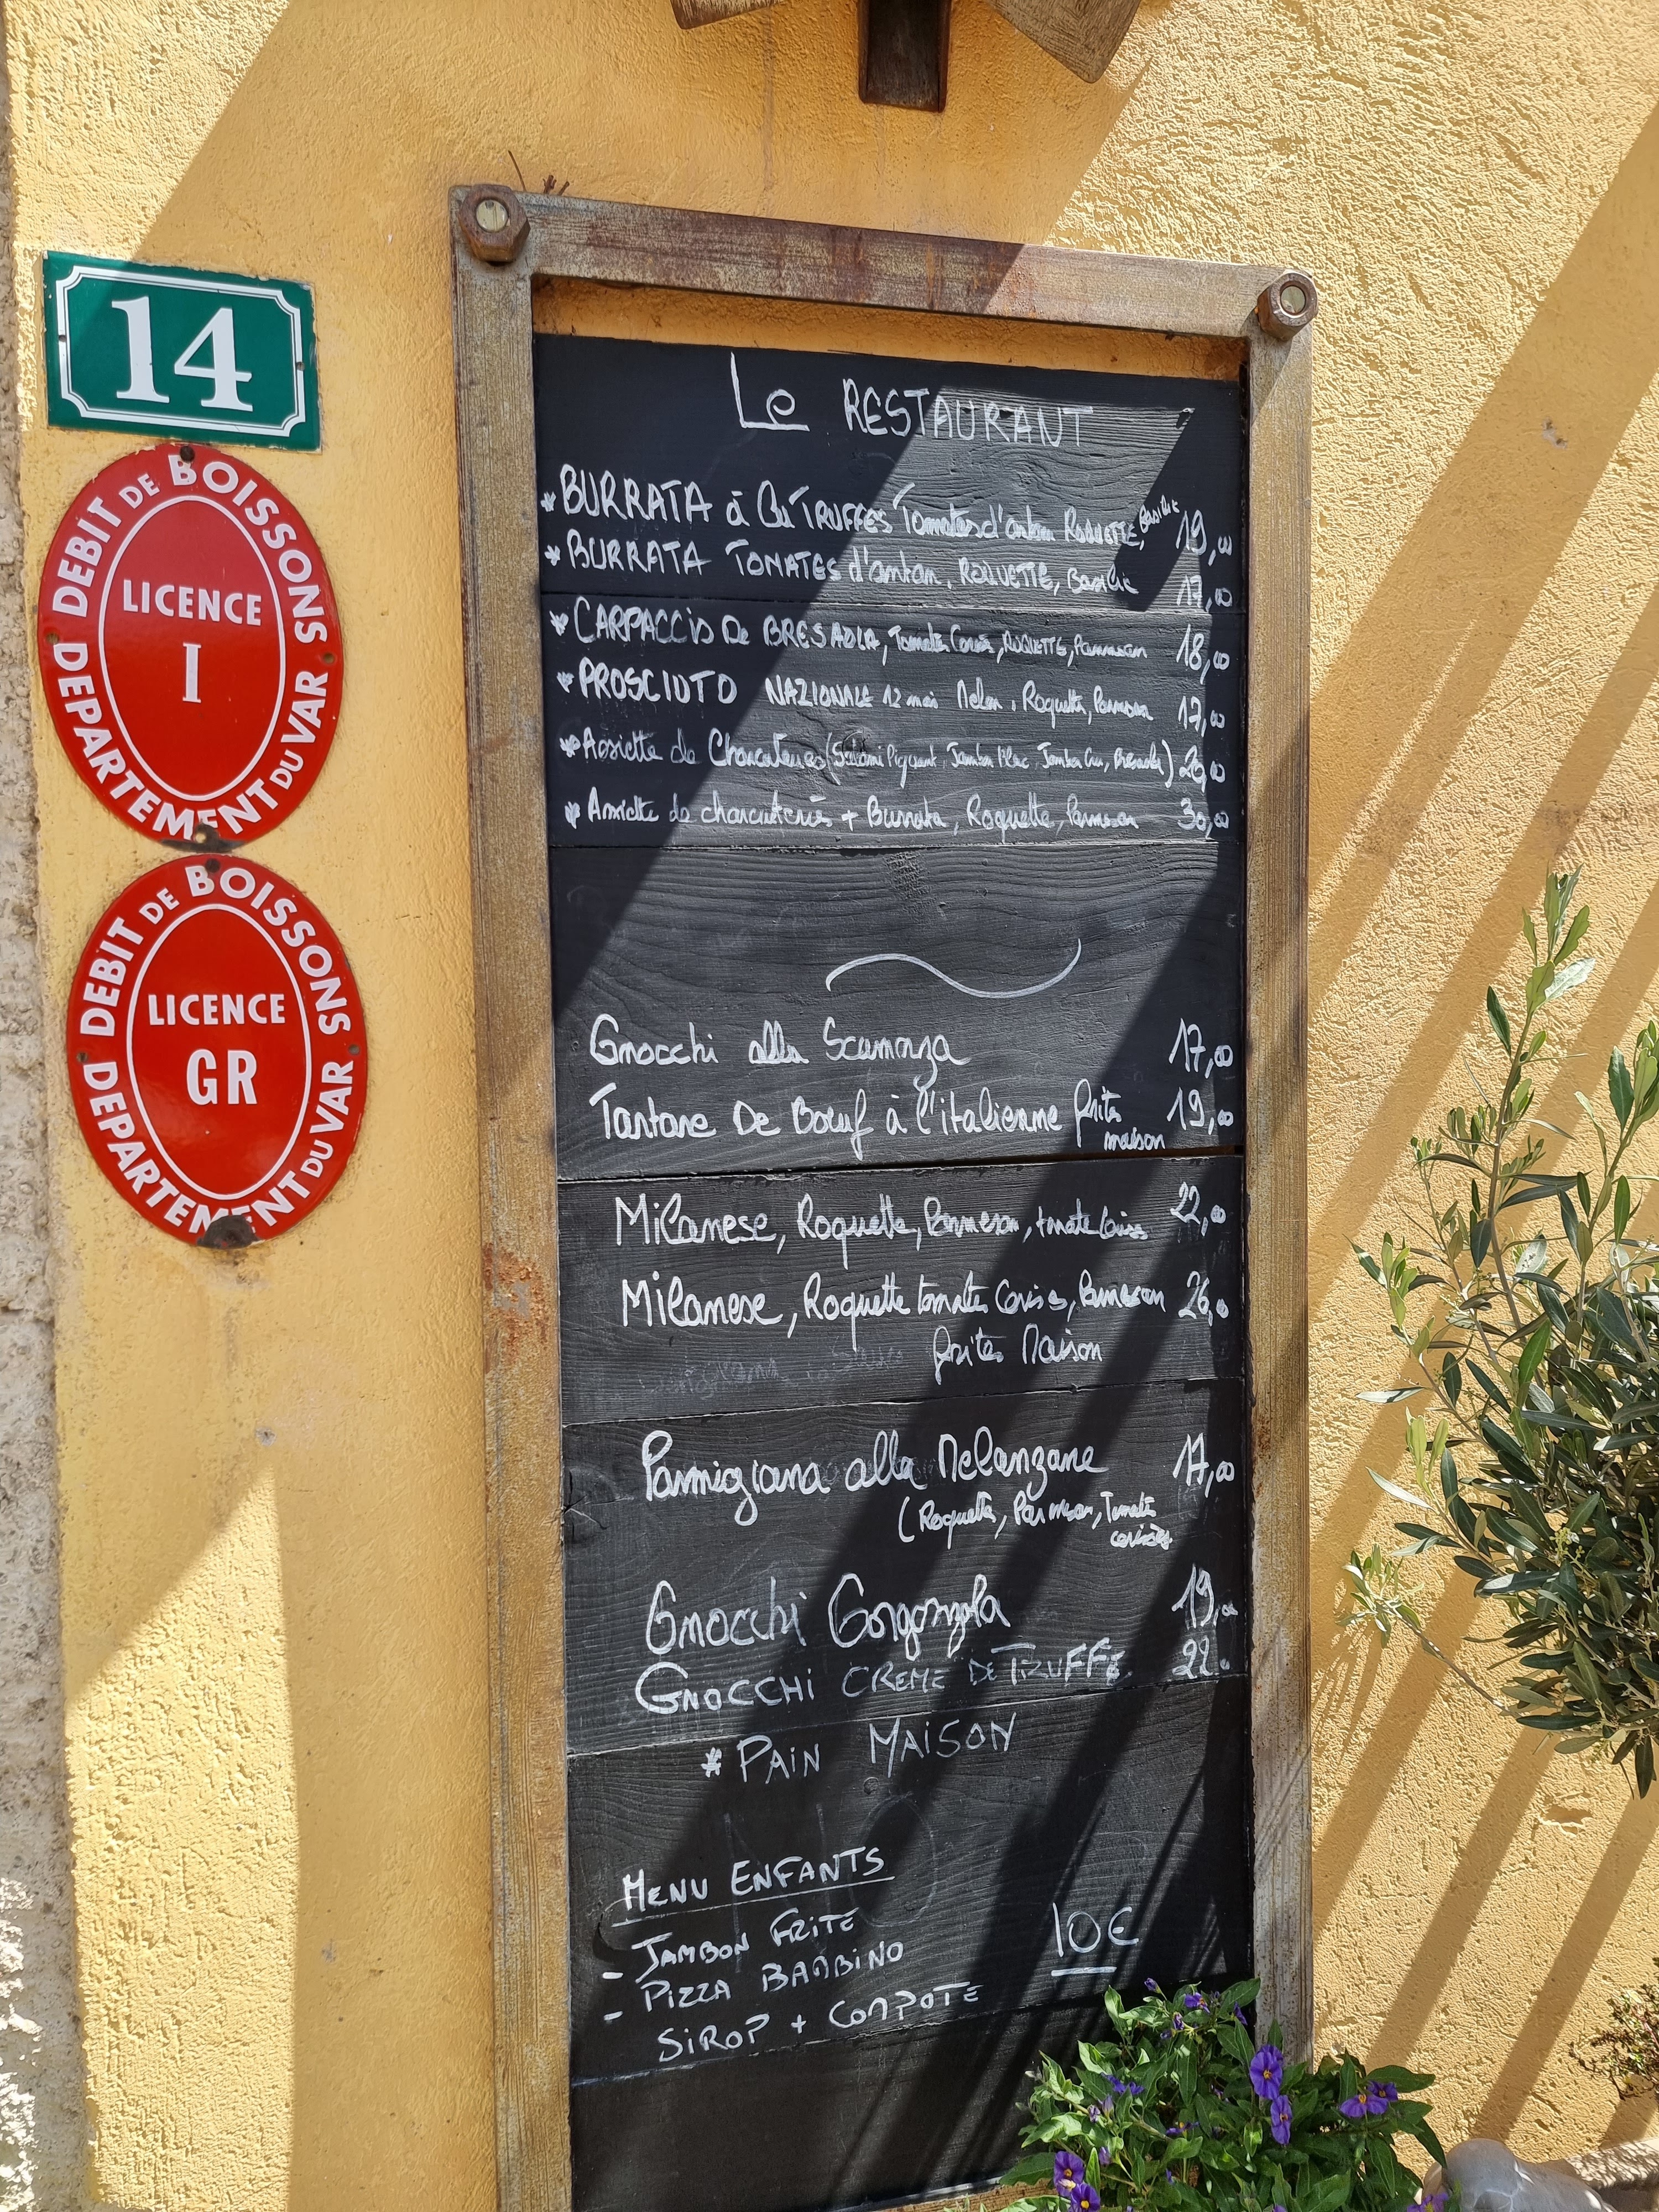 14
DEBIT DE BOISSONS
LICENCE
I
DEPARTEMENT DU VAR
DEBIT DE BOISSONS
LICENCE
GR
DEPARTEMENT DU VAR
Le RESTAURANT
* BURRATA à TRUFFES Tomates d'antan ROQUETTE, Basilic 19,00
* BURRATA TOMATES d'antan, ROQUETTE, Basilic 17,00
* CARPACCIO De BRESAOLA, Tomates, ROQUETTE, Parmesan 18,00
* PROSCIUTO NAZIONALE 12 mois Melon, Roquette, Parmesan 17,00
* Assiette de Charcuteries (Salami Piquant, Jambon Blanc, Jambon Cru, Bresaola) 20,00
* Assiette de charcuteries + Burrata, Roquette, Parmesan 30,00
Gnocchi alla Scamorza 17,00
Tartare De Boeuf à l'italienne frites 19,00
maison
Milanese, Roquette, Parmesan, tomate 22,00
Milanese, Roquette tomates Cerises, Parmesan 26,0
frites Maison
Parmigiana alla Melanzane 17,00
(Roquette, Parmesan, Tomate
cerises
Gnocchi Gorgonzola 19,00
GNOCCHI CREME DE TRUFFE 22.0
* PAIN MAISON
MENU ENFANTS
- JAMBON FRITE
10€
- PIZZA BAMBINO
SIROP + COMPOTE